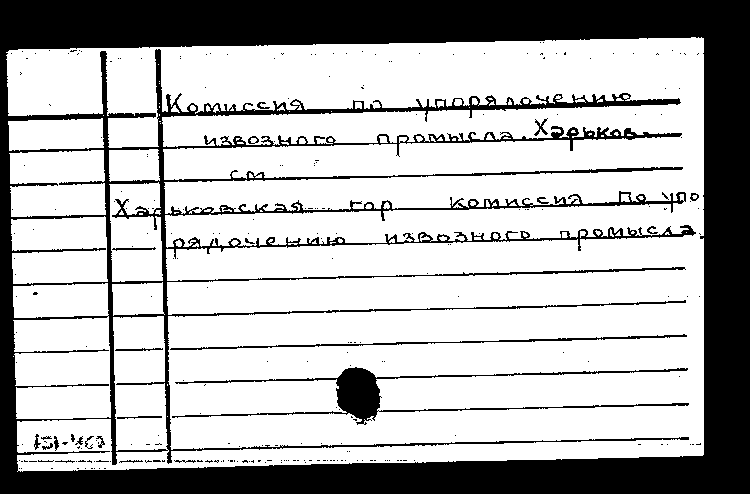 Комиссия по упорядочению
извозного промысла. Харьков.
см
Харьковская гор комиссия по упо
рядочению извозного промысла.